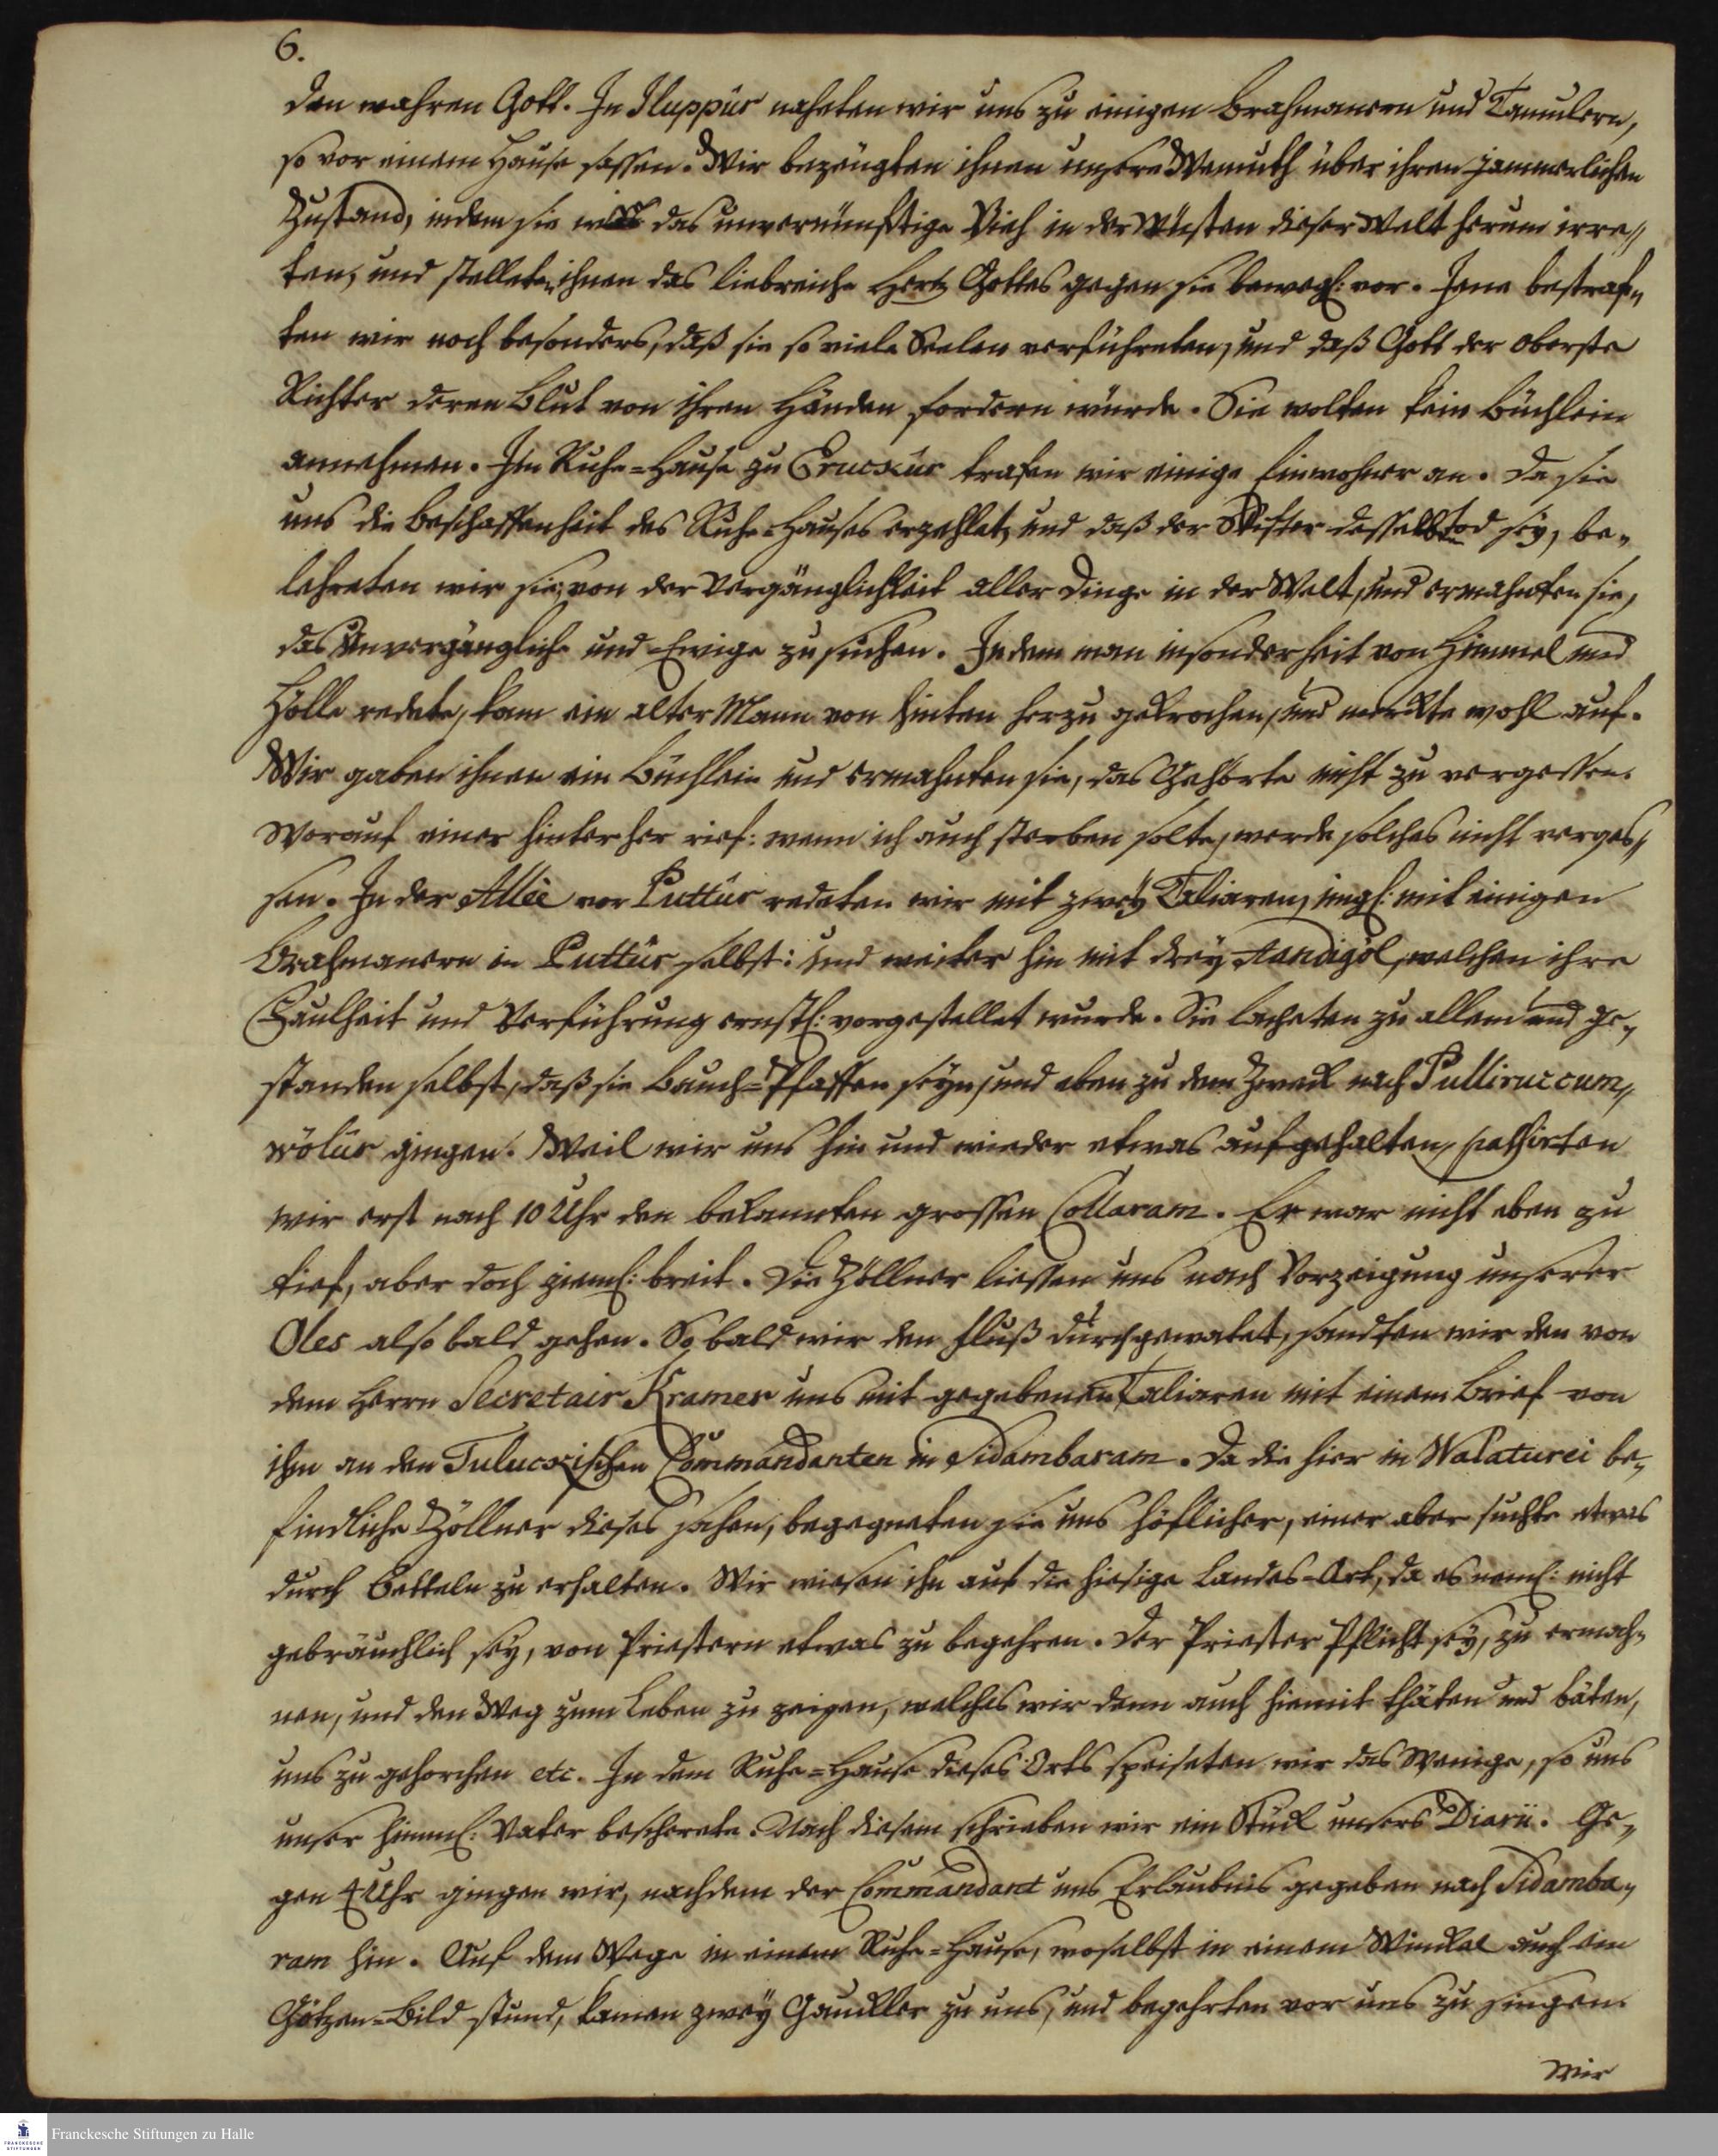 6.
den wahren Gott. In Iluppûr naheten wir uns zu einigen Brahmanern und Tamulern,
so vor einem Hause sassen. Wir bezeugten ihnen unsere Wemuth über ihren jammerlichen
Zustand, indem sie wie das unvernünftige Vieh in der Wüsten dieser Welt herum irre„
ten, und stelleten ihnen das liebreiche Hertz Gottes gegen sie bewegl: vor. Jene bestraf„
ten wir noch besonders, daß sie so viele Seelen verführeten, und daß Gott der oberste
Richter deren Blut von ihren Händen fordern würde. Sie wolten kein Büchlein
annehmen. Im Ruhe=Hause zu Erucxûr trafen wir einige Einwohner an. Da sie
uns die Beschaffenheit des Ruhe=Hauses erzehlet, und daß der Stifter desselben tod sey, be„
lehreten wir sie von der Vergänglichkeit aller Dinge in der Welt, und ermahnten sie,
das Unvergängliche und Ewige zu suchen. Indem man insonderheit von Himmel und
Hölle redete, kam ein alter Mann von hinten herzu gekrochen, und merckte wohl auf.
Wir gaben ihnen ein Büchlein und ermahnten sie, das Gehörte nicht zu vergessen.
Worauf einer hinterher rief: wenn ich auch sterben solte, werde solches nicht verges„
sen. In der Allée vor Puttûr redeten wir mit zwey Taliaren, imgl: mit einigen
Brahmanern in Puttûr selbst: und weiter hin mit drey Aandigöl, welchen ihre
Faulheit und Verführung ernstl: vorgestellet wurde. Sie lacheten zu allem und ge„
standen selbst, daß sie Bauch=Pfaffen seyn, und eben zu dem Zweck nach Pulliruccum„
wölûr gingen. Weil wir uns hin und wieder etwas aufgehalten, passirten
wir erst nach 10 Uhr den bekannten grossen Collaram. Er war nicht eben zu
tief, aber doch zieml: breit. Die Zöllner liessen uns nach Vorzeigung unserer
Oles also bald gehen. So bald wir den Fluß durchgewatet, sandten wir den von
dem Herrn Secretair Kramer uns mit gegebenen Taliaren mit einem Brief von
ihm an den Tulucxischen Commandanten in Sidambaram. Da die hier in Walaturei be„
findliche Zöllner dieses sahen, begegneten sie uns höflicher, einer aber suchte etwas
durch Betteln zu erhalten. Wir wiesen ihn auf die hiesige Landes-Art, da es neml: nicht
gebräuchlich sey, von Priestern etwas zu begehren. Der Priester Pflicht sey, zu ermah„
nen, und den Weg zum Leben zu zeigen, welches wir denn auch hiemit thäten und bäten,
uns zu gehorchen etc. In dem Ruhe=Hause dieses Orts speiseten wir das Wenige, so uns
unser himml: Vater bescherete. Nach diesem schrieben wir ein Stück unsers Diarii. Ge„
gen 4 Uhr gingen wir, nachdem der Commandant uns Erlaubnis gegeben nach Sidamba„
ram hin. Auf dem Wege in einem Ruhe=Hause, woselbst in einem Winckel auch ein
Götzen=Bild stund, kamen zwey Gauckler zu uns, und begehrten vor uns zu singen.
Wir
Franckesche Stiftungen zu Halle
FRANCKESCHE
STIFTUNGEN